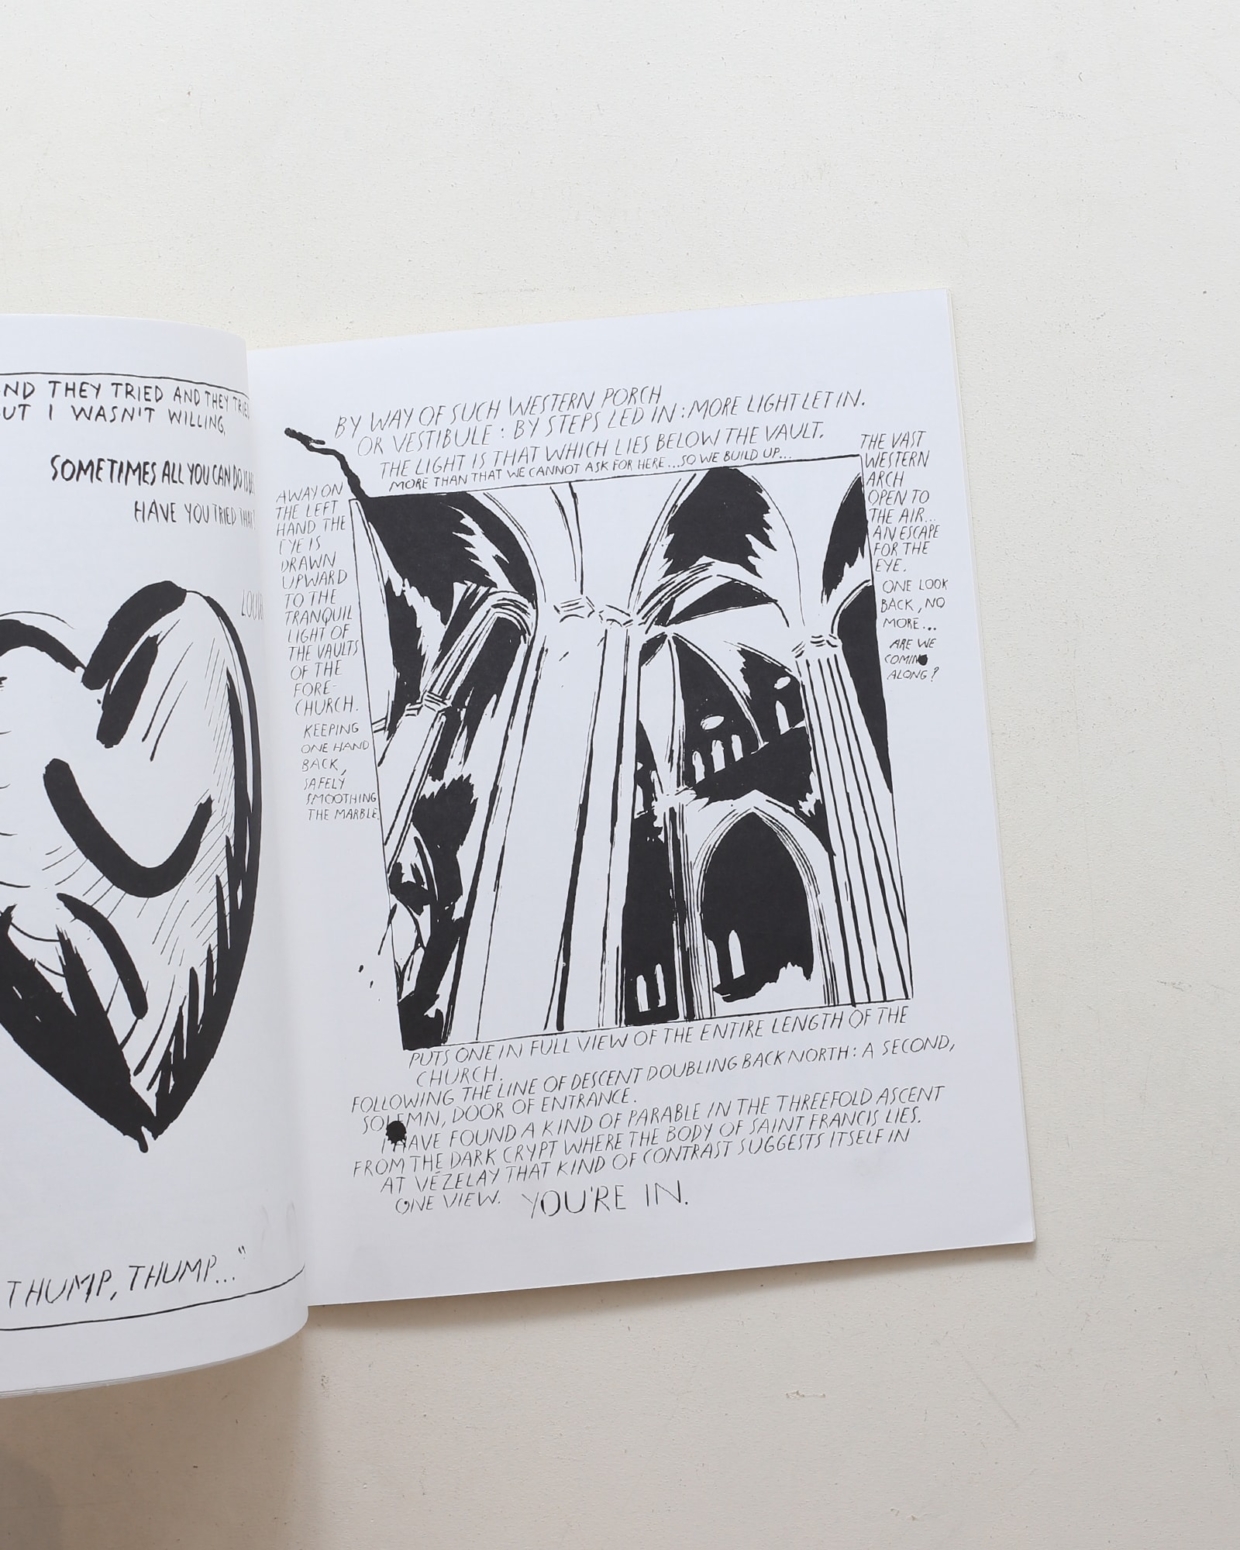 AND THEY TRIED AND THEY TRIED
BUT I WASN'T WILLING.
SOMETIMES ALL YOU CAN DO IS
HAVE YOU TRIED THAT?
THUMP, THUMP..."
BY WAY OF SUCH WESTERN PORCH
OR VESTIBULE : BY STEPS LED IN : MORE LIGHT LET IN.
THE LIGHT IS THAT WHICH LIES BELOW THE VAULT.
MORE THAN THAT WE CANNOT ASK FOR HERE...SO WE BUILD UP...
AWAY ON
THE LEFT
HAND THE
EYE IS
DRAWN
UPWARD
TO THE
TRANQUIL
LIGHT OF
THE VAULTS
OF THE
FORE-
CHURCH.
KEEPING
ONE HAND
BACK,
SAFELY
SMOOTHING
THE MARBLE.
THE VAST
WESTERN
ARCH
OPEN TO
THE AIR...
AN ESCAPE
FOR THE
EYE.
ONE LOOK
BACK, NO
MORE...
ARE WE
COMING
ALONG?
PUTS ONE IN FULL VIEW OF THE ENTIRE LENGTH OF THE
CHURCH.
FOLLOWING THE LINE OF DESCENT DOUBLING BACK NORTH : A SECOND,
SOLEMN, DOOR OF ENTRANCE.
I HAVE FOUND A KIND OF PARABLE IN THE THREEFOLD ASCENT
FROM THE DARK CRYPT WHERE THE BODY OF SAINT FRANCIS LIES.
AT VÉZELAY THAT KIND OF CONTRAST SUGGESTS ITSELF IN
ONE VIEW. YOU'RE IN.